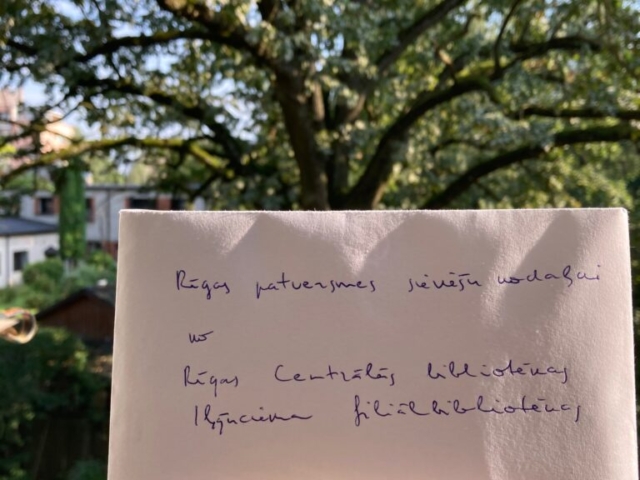 Rīgas patversmes sieviešu nodaļai
no
Rīgas Centrālās bibliotēkas
Iļģuciema filiālbibliotēkas